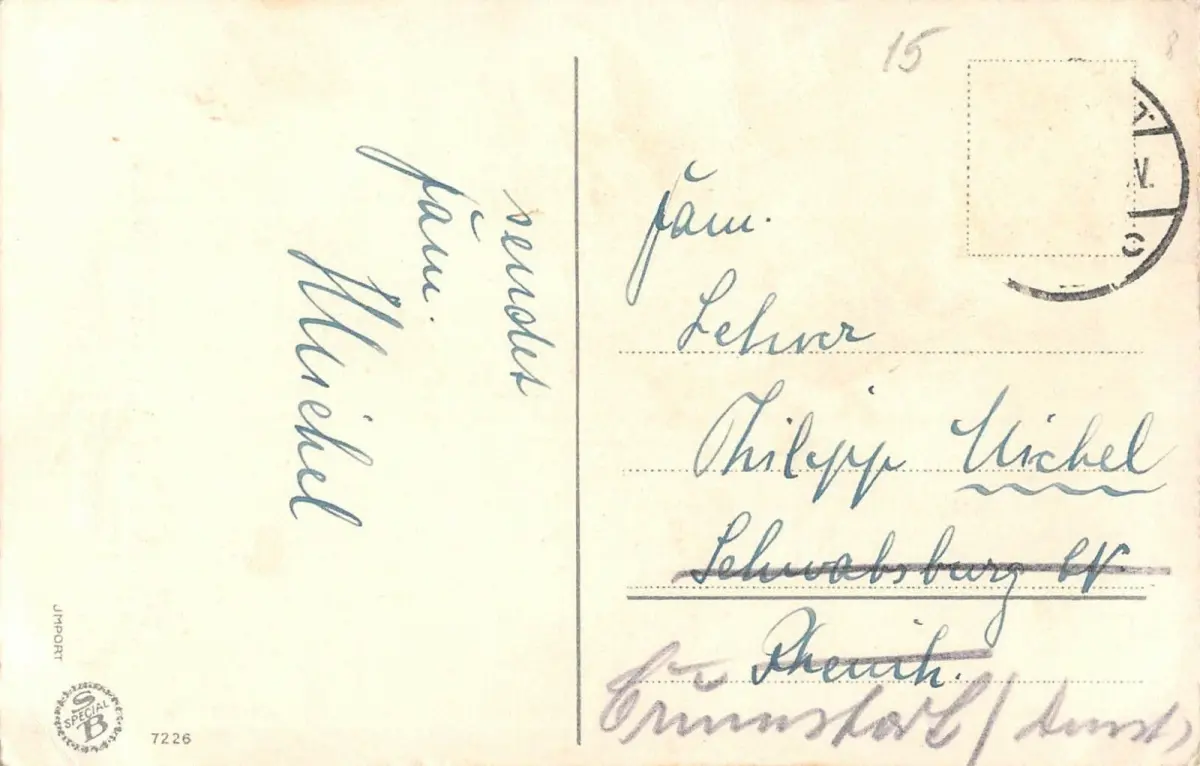 sendet
fam.
Michel
15
8
fam.
Lehrer
Philipp Michel
Schwabsburg
Rheinh.
Grünstadt /
JMPORT
S
SPECIAL
B
7226